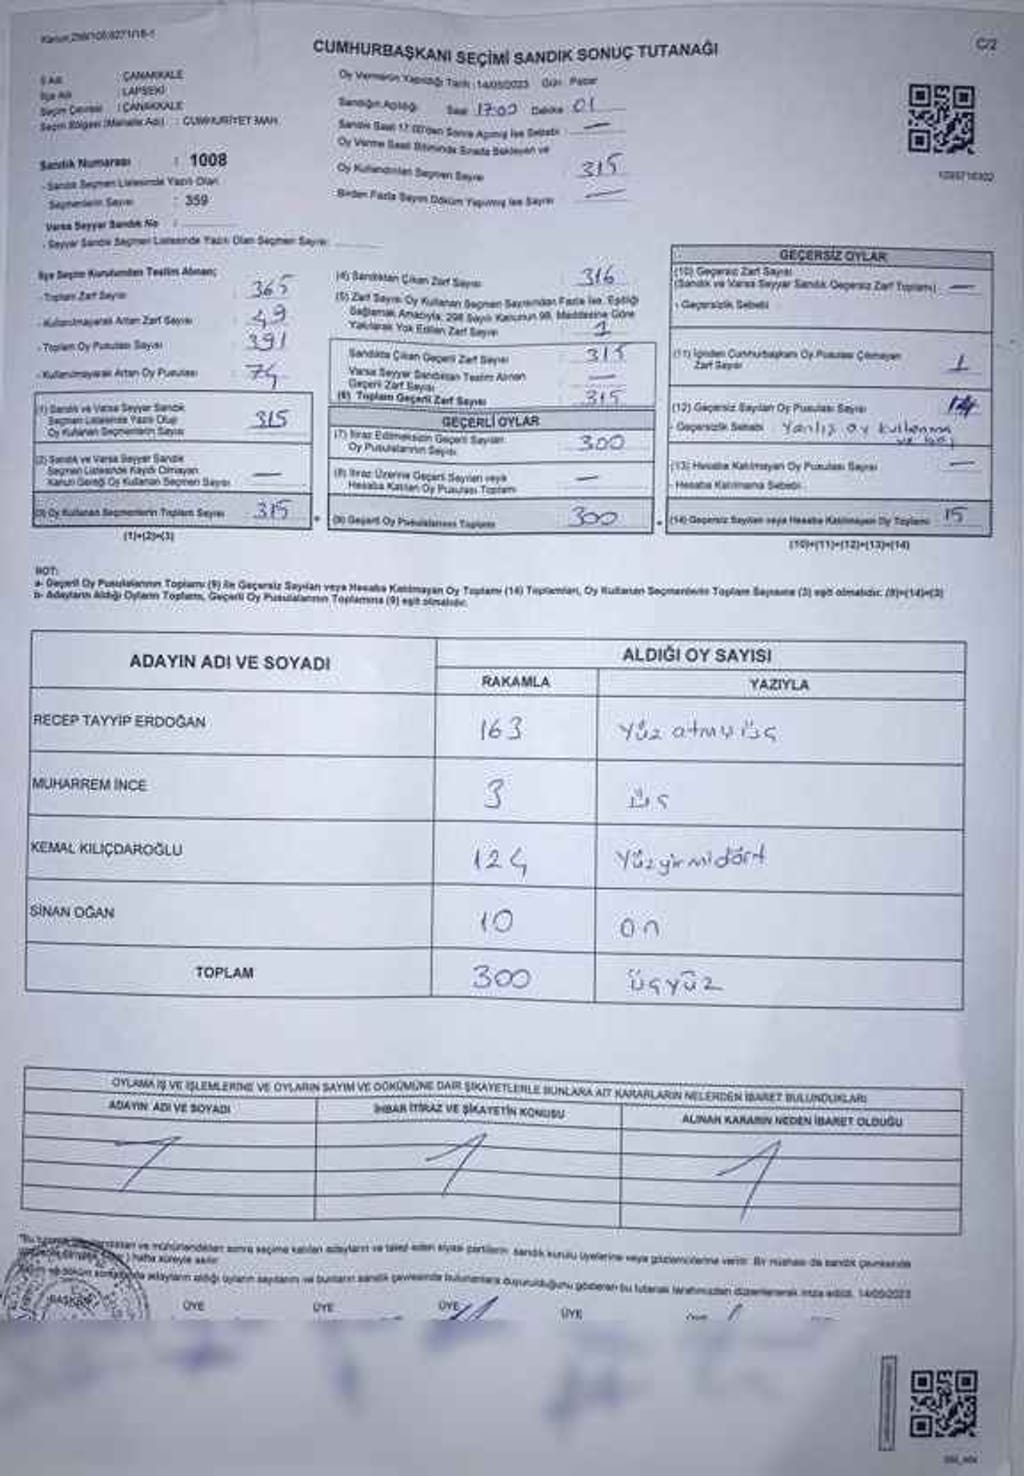 C/2
CUMHURBAŞKANI SEÇİMİ SANDIK SONUÇ TUTANAĞI
İl Adı : ÇANAKKALE
İlçe Adı : LAPSEKİ
Seçim Çevresi : ÇANAKKALE
Seçim Bölgesi (Mahalle Adı) : CUMHURİYET MAH.
Sandık Numarası : 1008
- Sandık Seçmen Listesinde Yazılı Olan
Seçmenlerin Sayısı : 359
Varsa Seyyar Sandık No :
- Seyyar Sandık Seçmen Listesinde Yazılı Olan Seçmen Sayısı:
Oy Vermenin Yapıldığı Tarih : 14/05/2023 Gün : Pazar
Sandığın Açıldığı Saat 17:00 Dakika 01
Sandık Saat 17:00'den Sonra Açılmış İse Sebebi : —
Oy Verme Saati Bitiminde Sırada Bekleyen ve
Oy Kullandırılan Seçmen Sayısı 315
Birden Fazla Sayım Döküm Yapılmış İse Sayısı —
İlçe Seçim Kurulundan Teslim Alınan;
- Toplam Zarf Sayısı 365
- Kullanılmayarak Artan Zarf Sayısı 49
- Toplam Oy Pusulası Sayısı 391
- Kullanılmayarak Artan Oy Pusulası 74
(1) Sandık ve Varsa Seyyar Sandık
Seçmen Listesinde Yazılı Olup
Oy Kullanan Seçmenlerin Sayısı 315
(2) Sandık ve Varsa Seyyar Sandık
Seçmen Listesinde Kaydı Olmayan
Kanun Gereği Oy Kullanan Seçmen Sayısı —
(3) Oy Kullanan Seçmenlerin Toplam Sayısı 315
(1)+(2)=(3)
(4) Sandıktan Çıkan Zarf Sayısı 316
(5) Zarf Sayısı Oy Kullanan Seçmen Sayısından Fazla İse, Eşitliği
Sağlamak Amacıyla, 298 Sayılı Kanunun 98. Maddesine Göre
Yakılarak Yok Edilen Zarf Sayısı 1
Sandıkta Çıkan Geçerli Zarf Sayısı 315
Varsa Seyyar Sandıktan Teslim Alınan
Geçerli Zarf Sayısı —
(6) Toplam Geçerli Zarf Sayısı 315
GEÇERLİ OYLAR
(7) İtiraz Edilmeksizin Geçerli Sayılan
Oy Pusulalarının Sayısı 300
(8) İtiraz Üzerine Geçerli Sayılan veya
Hesaba Katılan Oy Pusulası Toplamı —
(9) Geçerli Oy Pusulalarının Toplamı 300
GEÇERSİZ OYLAR
(10) Geçersiz Zarf Sayısı
(Sandık ve Varsa Seyyar Sandık Geçersiz Zarf Toplamı) —
- Geçersizlik Sebebi
(11) İçinden Cumhurbaşkanı Oy Pusulası Çıkmayan
Zarf Sayısı 1
(12) Geçersiz Sayılan Oy Pusulası Sayısı 14
- Geçersizlik Sebebi Yanlış oy kullanma
(13) Hesaba Katılmayan Oy Pusulası Sayısı —
- Hesaba Katılmama Sebebi
(14) Geçersiz Sayılan veya Hesaba Katılmayan Oy Toplamı 15
(10)+(11)+(12)+(13)=(14)
NOT:
a- Geçerli Oy Pusulalarının Toplamı (9) ile Geçersiz Sayılan veya Hesaba Katılmayan Oy Toplamı (14) Toplamları, Oy Kullanan Seçmenlerin Toplam Sayısına (3) eşit olmalıdır. (9)+(14)=(3)
b- Adayların Aldığı Oyların Toplamı, Geçerli Oy Pusulalarının Toplamına (9) eşit olmalıdır.
ADAYIN ADI VE SOYADI
ALDIĞI OY SAYISI
RAKAMLA YAZIYLA
RECEP TAYYİP ERDOĞAN 163 Yüz atmış üç
MUHARREM İNCE 3 üç
KEMAL KILIÇDAROĞLU 124 Yüzyirmidört
SİNAN OĞAN 10 on
TOPLAM 300 üçyüz
OYLAMA İŞ VE İŞLEMLERİNE VE OYLARIN SAYIM VE DÖKÜMÜNE DAİR ŞİKAYETLERLE BUNLARA AİT KARARLARIN NELERDEN İBARET BULUNDUKLARI
ADAYIN ADI VE SOYADI İHBAR İTİRAZ VE ŞİKAYETİN KONUSU ALINAN KARARIN NEDEN İBARET OLDUĞU
ve mühürlendikten sonra seçime katılan adayların ve talep eden siyasi partilerin sandık kurulu üyelerine veya gözlemcilerine verilir. Bir nüshası da sandık çevresinde
hafta süreyle asılır.
adayların aldığı oyların sayılarını ve bunların sandık çevresinde bulunanlara duyurulduğunu gösteren bu tutanak tarafımızdan düzenlenerek imza edildi. 14/05/2023
BAŞKAN ÜYE ÜYE ÜYE ÜYE